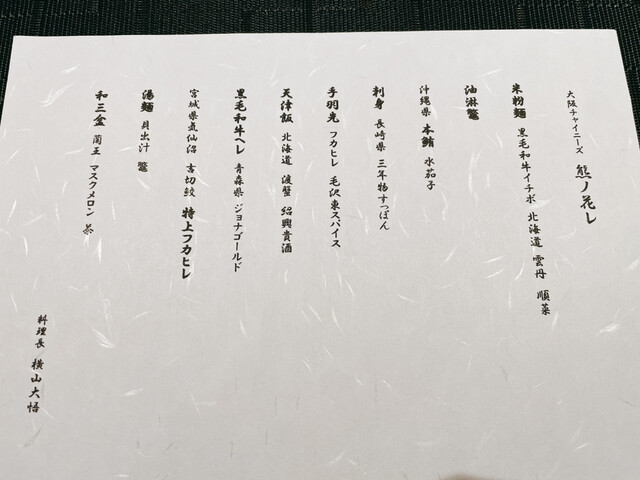 大阪チャイニーズ 熊ノ花レ
米粉麺 黒毛和牛イチボ 北海道 雲丹 順菜
油淋鼈
沖縄県 本鮪 水茄子
刺身 長崎県 三年物すっぽん
手羽先 フカヒレ 毛沢東スパイス
天津飯 北海道 渡蟹 紹興貴酒
黒毛和牛ヘレ 青森県 ジョナゴールド
宮城県気仙沼 吉切鮫 特上フカヒレ
湯麺 貝出汁 鼈
和三盆 蘭王 マスクメロン 茶
料理長 横山大悟